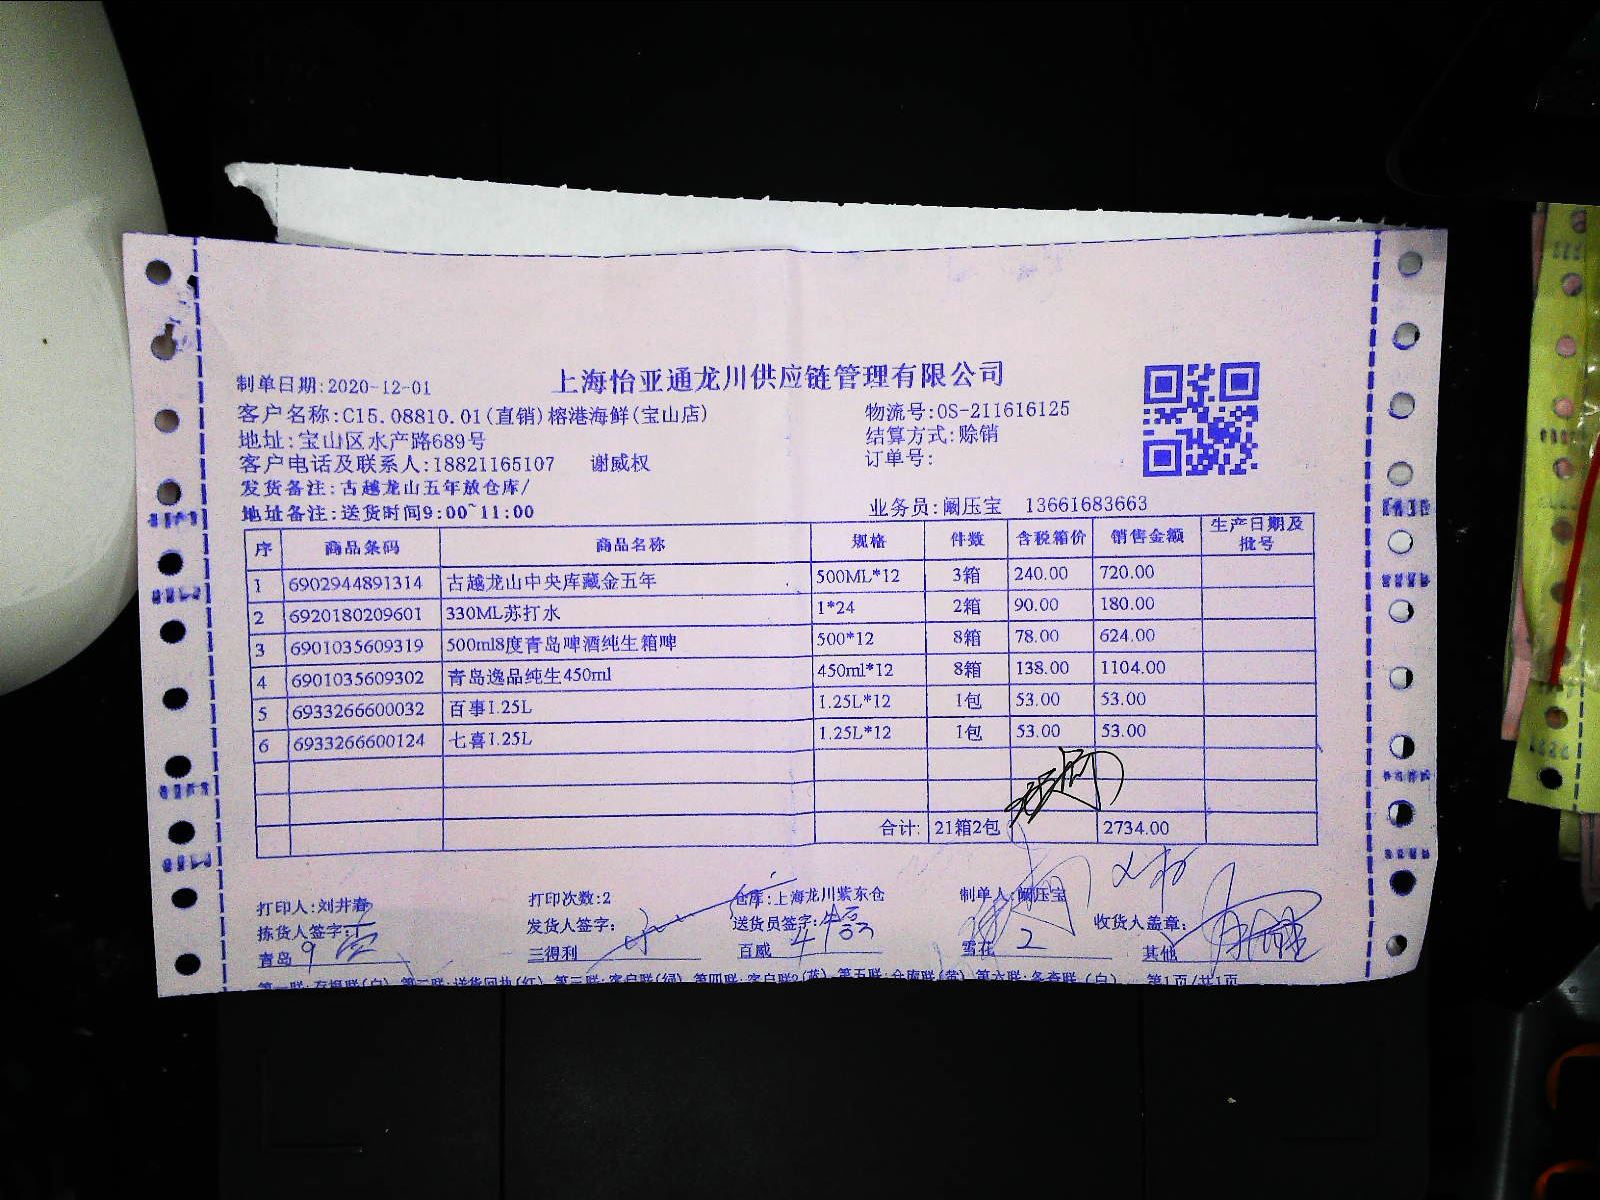 上海怡亚通龙川供应链管理有限公司
制单日期:2020-12-01
客户名称:C15.08810.01(直销)榕港海鲜(宝山店) 物流号:OS-211616125
地址:宝山区水产路689号 结算方式:赊销
客户电话及联系人:18821165107 谢威权 订单号:
发货备注:古越龙山五年放仓库/
地址备注:送货时间9:00~11:00 业务员:阚压宝 13661683663
序 商品条码 商品名称 规格 件数 含税箱价 销售金额 生产日期及批号
1 6902944891314 古越龙山中央库藏金五年 500ML*12 3箱 240.00 720.00
2 6920180209601 330ML苏打水 1*24 2箱 90.00 180.00
3 6901035609319 500ml8度青岛啤酒纯生箱啤 500*12 8箱 78.00 624.00
4 6901035609302 青岛逸品纯生450ml 450ml*12 8箱 138.00 1104.00
5 6933266600032 百事1.25L 1.25L*12 1包 53.00 53.00
6 6933266600124 七喜1.25L 1.25L*12 1包 53.00 53.00
合计: 21箱2包 2734.00
打印人:刘井春 打印次数:2 仓库:上海龙川紫东仓 制单人:阚压宝
拣货人签字: 发货人签字: 送货员签字: 收货人盖章:
青岛 9 三得利 百威 4 雪花 2 其他
第一联:存根联(白) 第二联:送货回执(红) 第三联:客户联(绿) 第四联:客户联2(蓝) 第五联:仓库联(黄) 第六联:备查联(白) 第1页/共1页